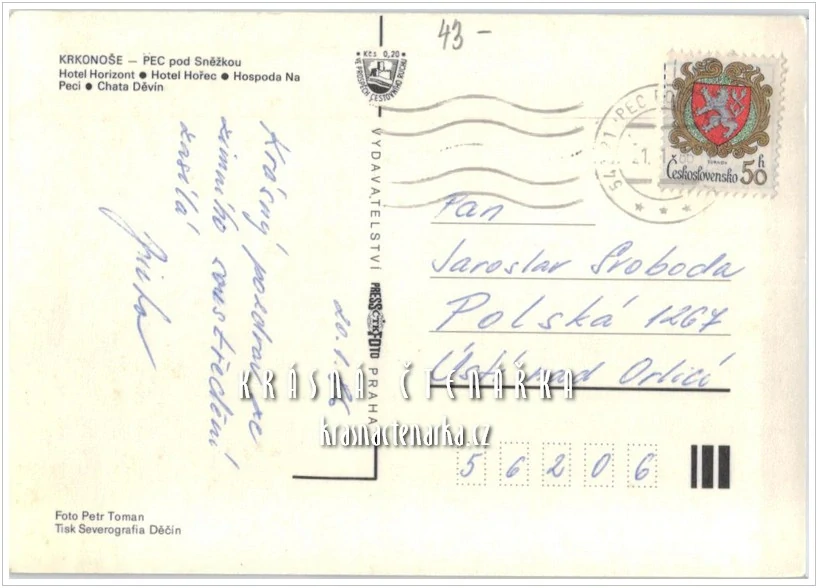 43 -
KRKONOŠE — PEC pod Sněžkou
Hotel Horizont ● Hotel Hořec ● Hospoda Na
Peci ● Chata Děvín
Kčs 0,20
VE PROSPĚCH CESTOVNÍHO RUCHU
Krásný pozdrav ze
zimního soustředění
zasílá
20.1.86
VYDAVATELSTVÍ PRESSFOTO PRAHA
ČTK
543 21 PEC
21.
Československo 50 h
Pan
Jaroslav Svoboda
Polská 1267
Ústí nad Orlicí
56206
KRÁSNÁ ČTENÁRKA
krasnactenarka.cz
Foto Petr Toman
Tisk Severografia Děčín